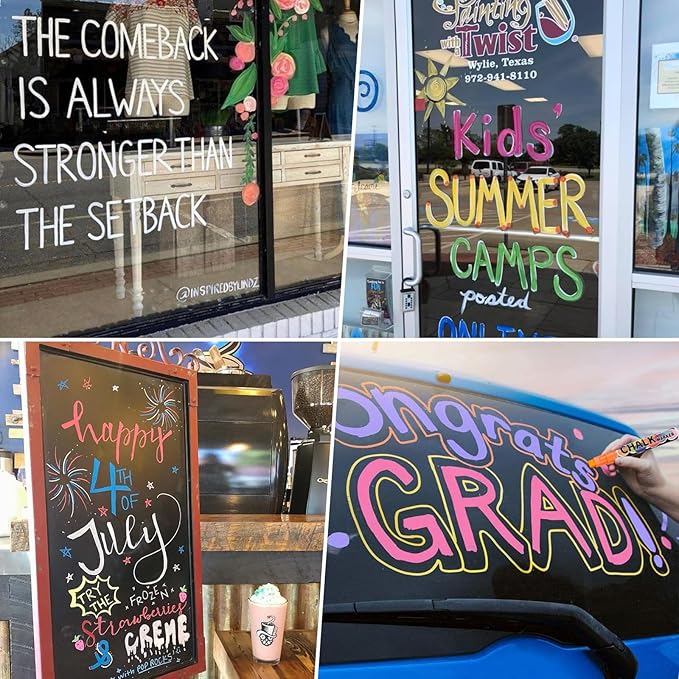 THE COMEBACK
IS ALWAYS
STRONGER THAN
THE SETBACK
@INSPYREDBYLINDZ
Painting
with a Twist
Wylie, Texas
972-941-8110
Kids'
SUMMER
CAMPS
posted
ONLINE
happy
4TH
OF
July
TRY
THE
FROZEN
Strawberries
& CREME
with POP ROCKS
Congrats
GRAD!
CHALK